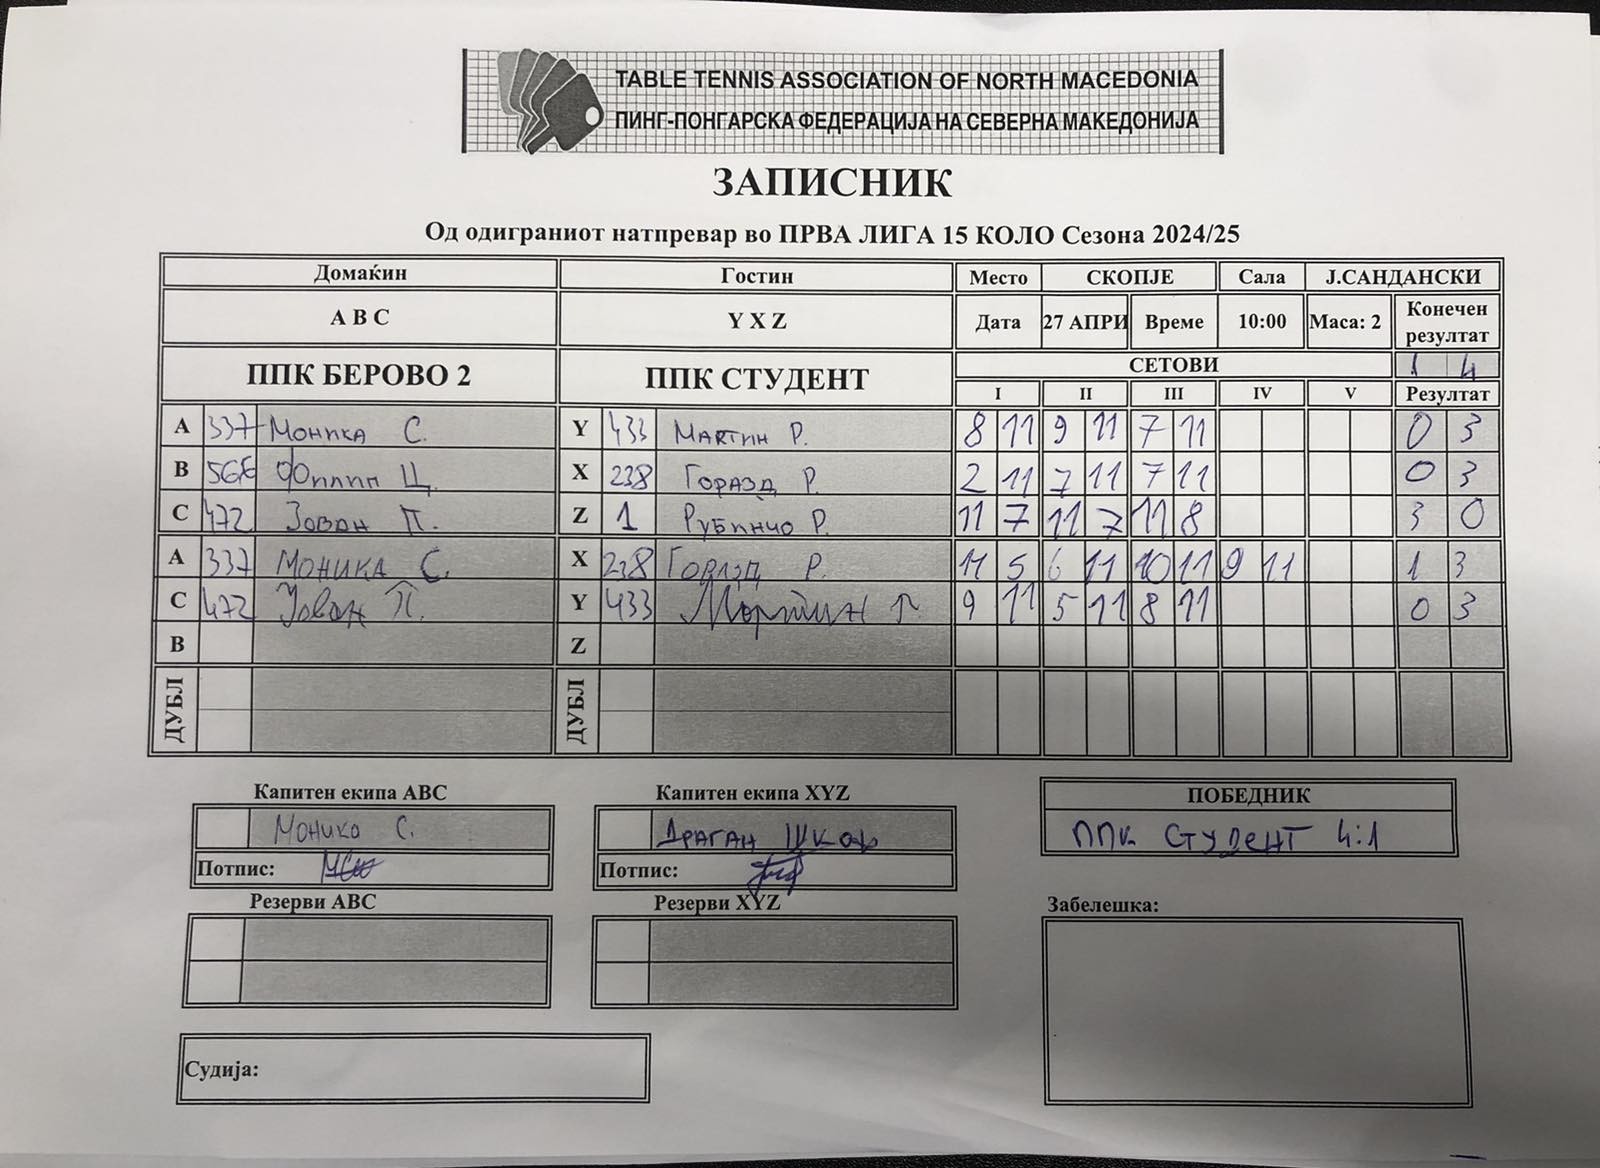 TABLE TENNIS ASSOCIATION OF NORTH MACEDONIA
ПИНГ-ПОНГАРСКА ФЕДЕРАЦИЈА НА СЕВЕРНА МАКЕДОНИЈА
ЗАПИСНИК
Од одиграниот натпревар во ПРВА ЛИГА 15 КОЛО Сезона 2024/25
Домаќин Гостин Место СКОПЈЕ Сала Ј.САНДАНСКИ
A B C Y X Z Дата 27 АПРИ Време 10:00 Маса: 2 Конечен резултат
ППК БЕРОВО 2 ППК СТУДЕНТ СЕТОВИ 1 4
I II III IV V Резултат
A 337 Моника С. Y 433 Мартин Р. 8 11 9 11 7 11 0 3
B 566 Филип Ц. X 238 Горазд Р. 2 11 7 11 7 11 0 3
C 472 Јован П. Z 1 Рубинчо Р. 11 7 11 7 11 8 3 0
A 337 Моника С. X 238 Горазд Р. 11 5 6 11 10 11 9 11 1 3
C 472 Јован П. Y 433 Мартин Р. 9 11 5 11 8 11 0 3
B Z
ДУБЛ ДУБЛ
Капитен екипа ABC Капитен екипа XYZ ПОБЕДНИК
Моника С. Драган ППК СТУДЕНТ 4:1
Потпис: Потпис:
Резерви ABC Резерви XYZ Забелешка:
Судија: